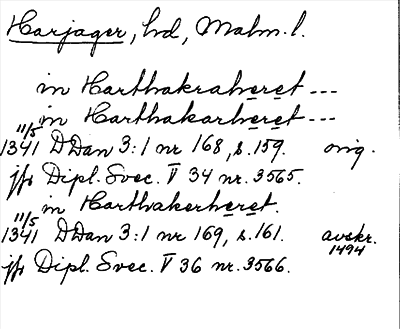 Harjager, hd, Malm. l.
in Harthakraheret ---
in Harthakarheret ---
11/5
1341 DDan 3:1 nr 168, s. 159. orig.
jfr Dipl. Svec. V 34 nr. 3565.
in Harthakerheret.
11/5
1341 DDan 3:1 nr 169, s. 161. avskr. 1494
jfr Dipl. Svec. V 36 nr. 3566.